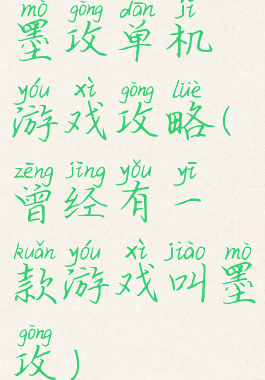 mò gōng dān jī
墨攻单机
yóu xì gōng lüè
游戏攻略(
zēng jīng yǒu yī
曾经有一
kuǎn yóu xì jiào mò
款游戏叫墨
gōng
攻)